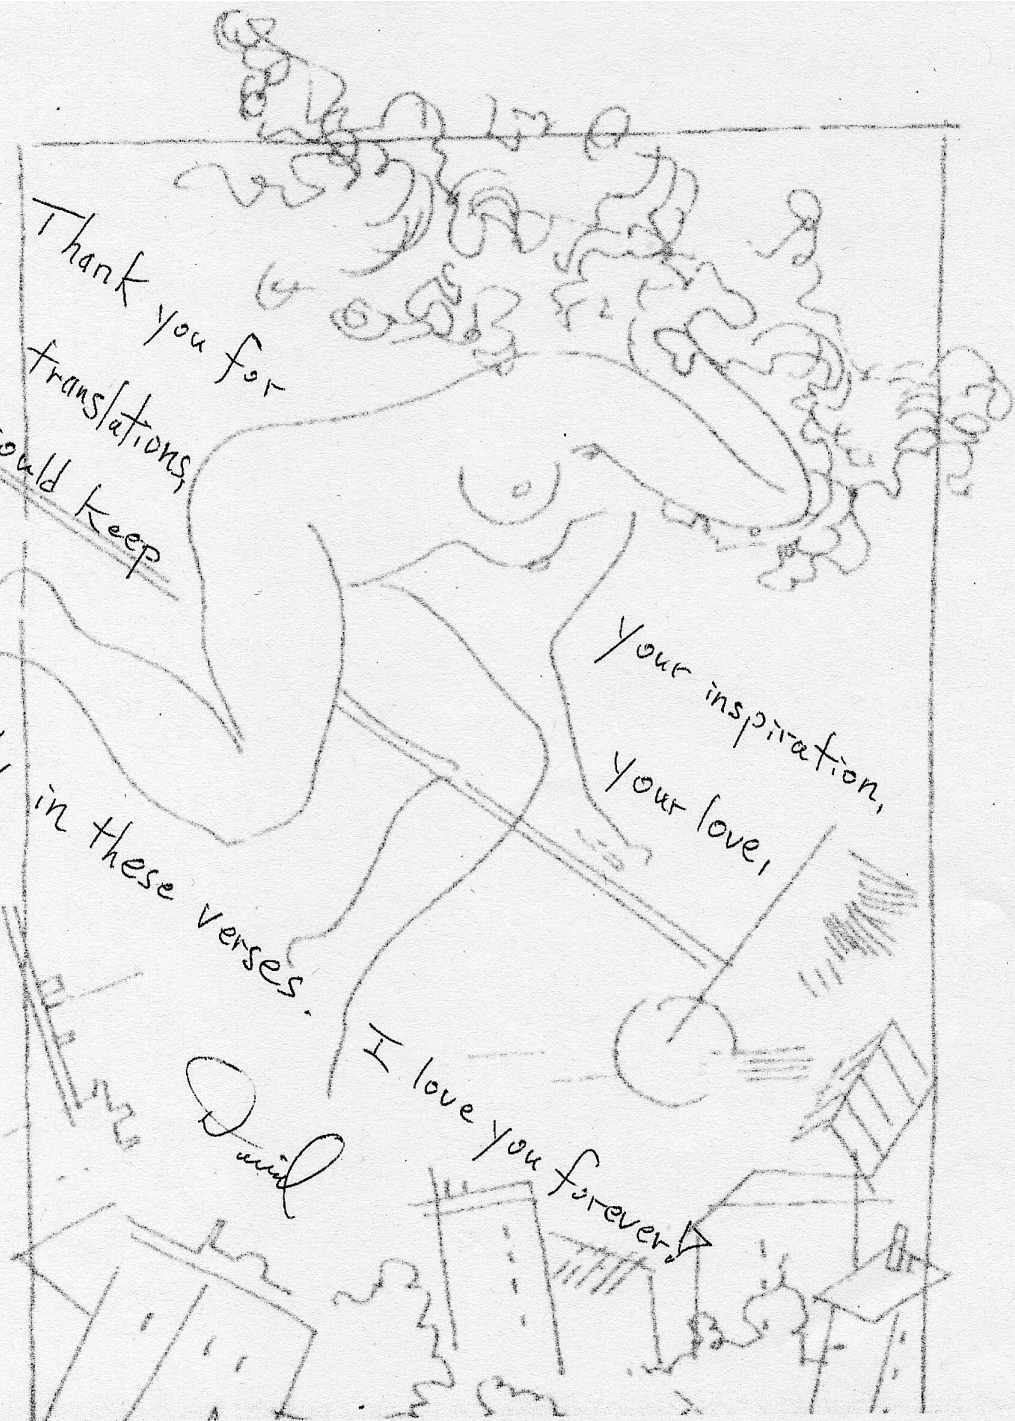 Thank you for
translations,
ould keep
your inspiration,
your love,
in these verses.
I love you forever!
David